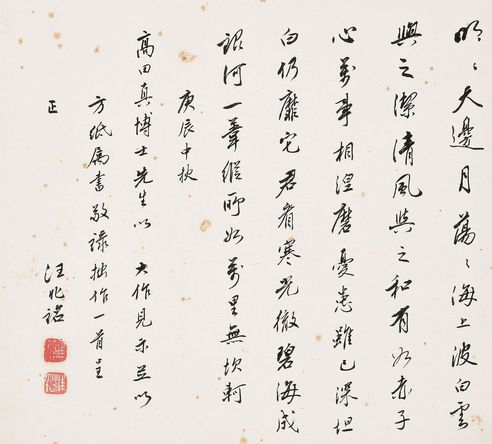 明〻天邊月蕩〻海上波白雲
與之潔清風與之和有如赤子
心萬事相涅磨憂患雖已深坦
白仍靡它君看寒光徹碧海成
銀河一葦縱所如萬里無坎軻
庚辰中秋
高田真博士先生以 大作見示並以
方紙属書敬錄拙作一首呈
正
汪兆銘